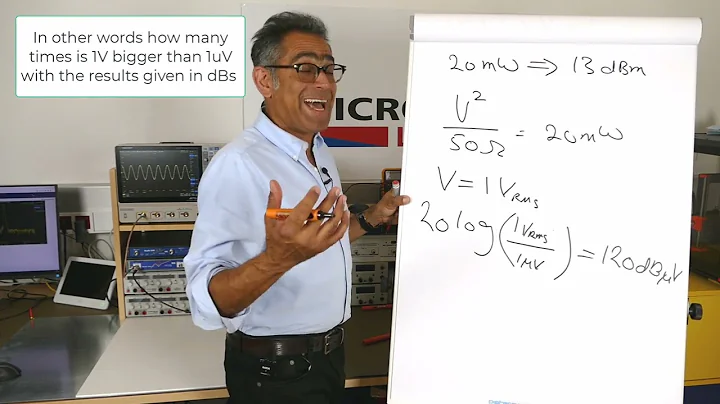 In other words how many
times is 1V bigger than 1uV
with the results given in dBs
ICRO
20mW ⇒ 13 dBm
V²/50Ω = 20mW
V = 1 VRMS
20 log (1 VRMS/1 μV) = 120 dBμV